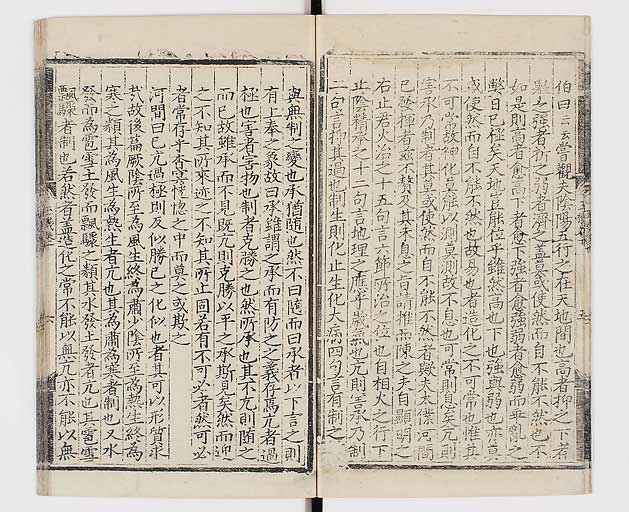 伯曰云云嘗觀夫陰陽五行之在天地間也高者抑之下者
舉之強者折之弱者濟之蓋莫或使然而自不能不然也不
如是則高者愈高下者愈下強者愈強弱者愈弱而乖亂之
弊日已極矣天地豈能位乎雖然高也下也強與弱也亦莫
或使然而自不能不然也故易也者造化之不可常也惟其
不可常故神化莫能以測莫測故不息也可常則息矣亢則
害承乃制者其莫或使然而自不能不然者歟夫太僕河間
已發揮者茲不贅及其未悉之旨請推而陳之夫自顯明之
右止君火治之十五句言六節所治之位也自相火之下
止陰精承之十二句言地理之應乎歲氣也亢則害承乃制
二句言抑其過也制生則化止生化大病四句言有制之
與無制之變也承猶隨也然不曰隨而曰承者以下言之則
有上奉之象故曰承雖謂之承而有防之之義存焉亢者過
極也害者害物也制者克勝之也然所承也其不亢則隨之
而已故雖承而不見既亢則克勝以平之承斯見矣然而迎
之不知其所來迹之不知其所止固若有不可必者然可必
者常存乎杳冥恍惚之中而莫之或欺也
河間曰已亢過極則反似勝己之化似也者其可以形質求
哉故後篇厥陰所至為風生終為肅少陰所至為熱生終為
寒之類其為風生為熱生者亢也其為肅為寒者制也又水
發而為雹雪土發而飄驟之類其水發土發者亢也其雹雪
飄驟者制也若然者蓋造化之常不能以無亢亦不能以無